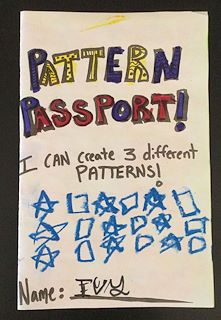 PATTERN
PASSPORT!
I CAN create 3 different
PATTERNS!
Name: IVY